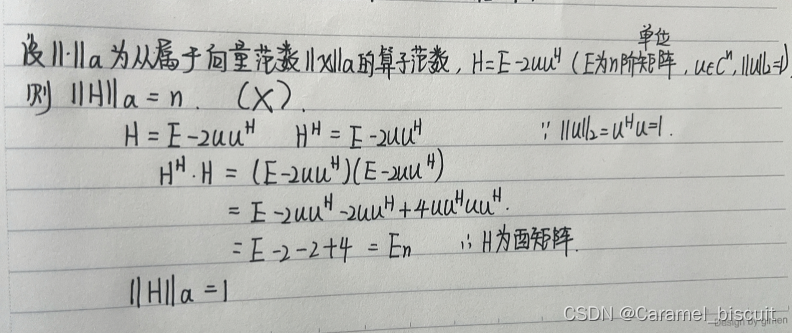 单位
设||·||a为从属于向量范数||x||a的算子范数，H=E-2uuᴴ（E为n阶矩阵，u∈Cⁿ，||u||₂=1）
则 ||H||a=n. （×）.
H=E-2uuᴴ Hᴴ=E-2uuᴴ ∵||u||₂=uᴴu=1.
Hᴴ·H=(E-2uuᴴ)(E-2uuᴴ)
=E-2uuᴴ-2uuᴴ+4uuᴴuuᴴ.
=E-2-2+4=En ∴H为酉矩阵.
||H||a=1
CSDN @Caramel_biscuit